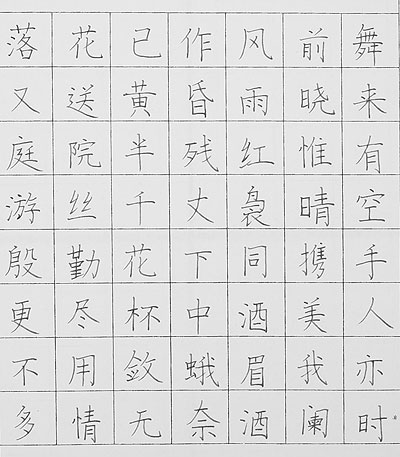 落花已作风前舞
又送黄昏雨晓来
庭院半残红惟有
游丝千丈袅晴空
殷勤花下同携手
更尽杯中酒美人
不用敛蛾眉我亦
多情无奈酒阑时